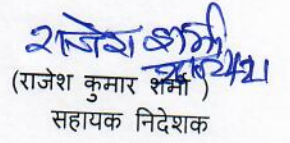 राजेश शर्मा
(राजेश कुमार शर्मा)
सहायक निदेशक